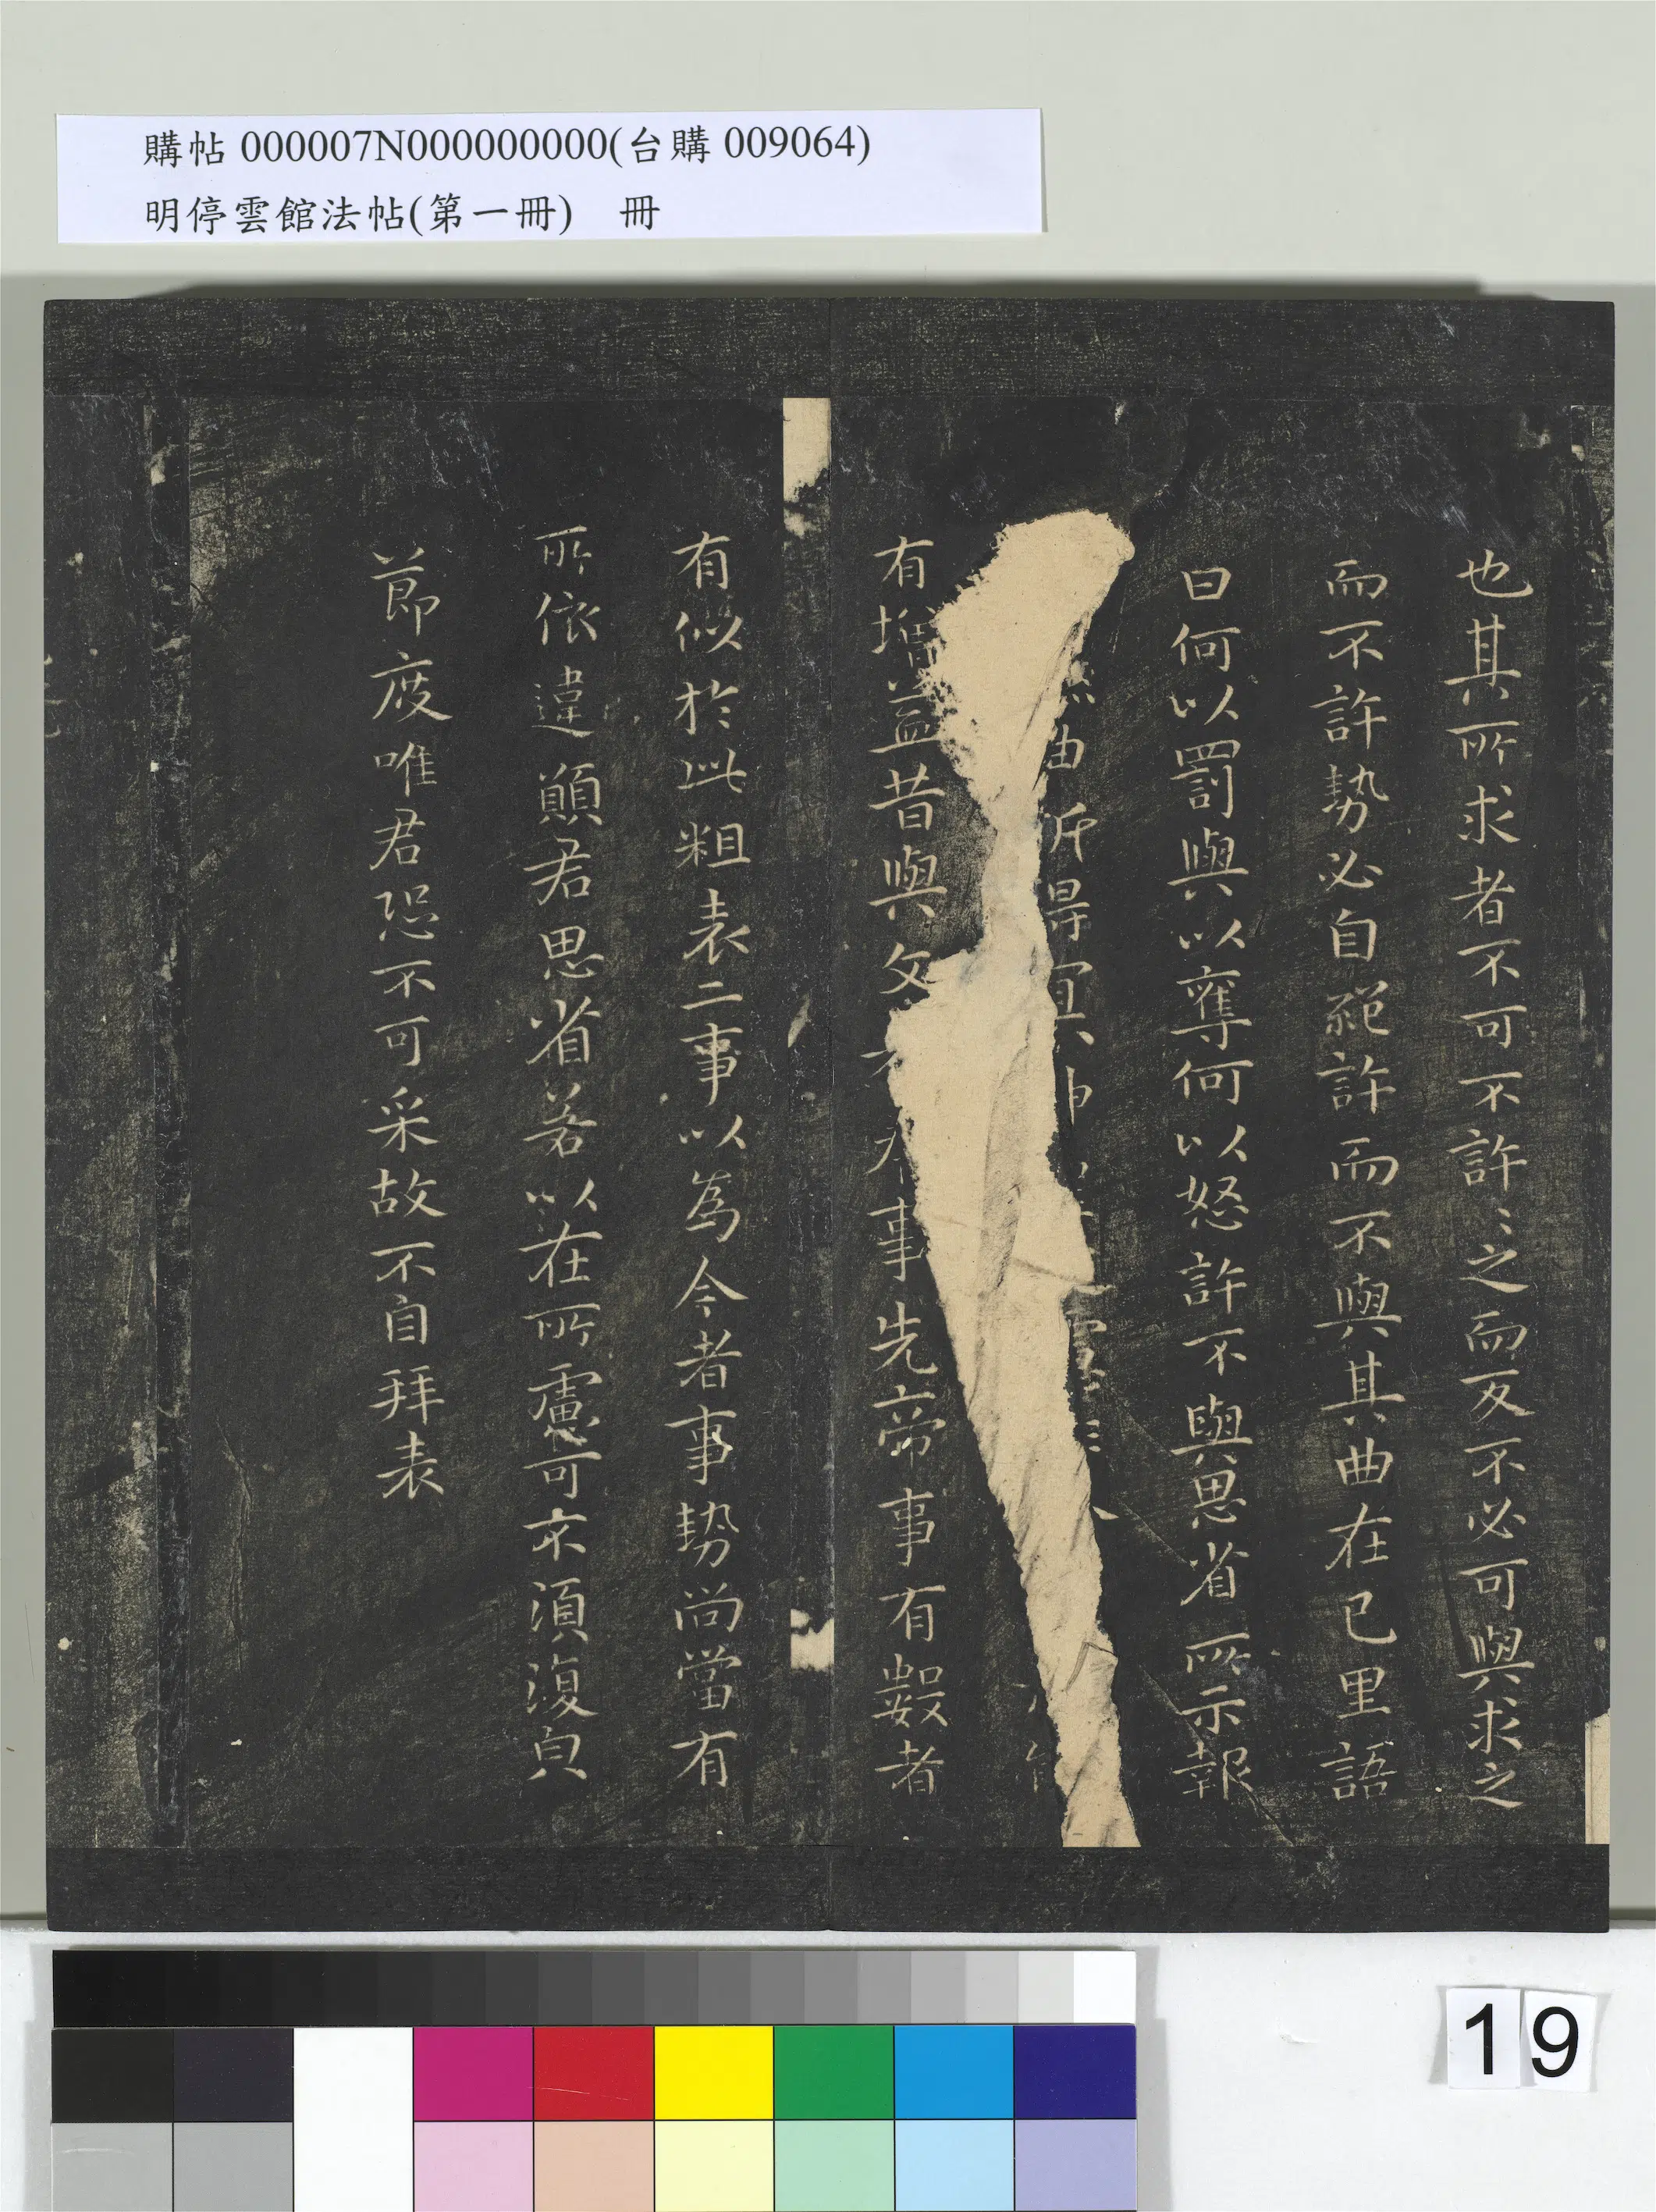 購帖 000007N000000000(台購 009064)
明停雲館法帖(第一冊) 冊
也其所求者不可不許〻之而反不必可與求之
而不許勢必自絕許而不與其曲在己里語
曰何以罰與以奪何以怒許不與思省所示報
由 所 得 宜
有增益昔與文 事先帝事有數者
有似於此粗表二事以為今者事勢尚當有
所依違願君思省若以在所慮可不須復皃
節度唯君恐不可采故不自拜表
19